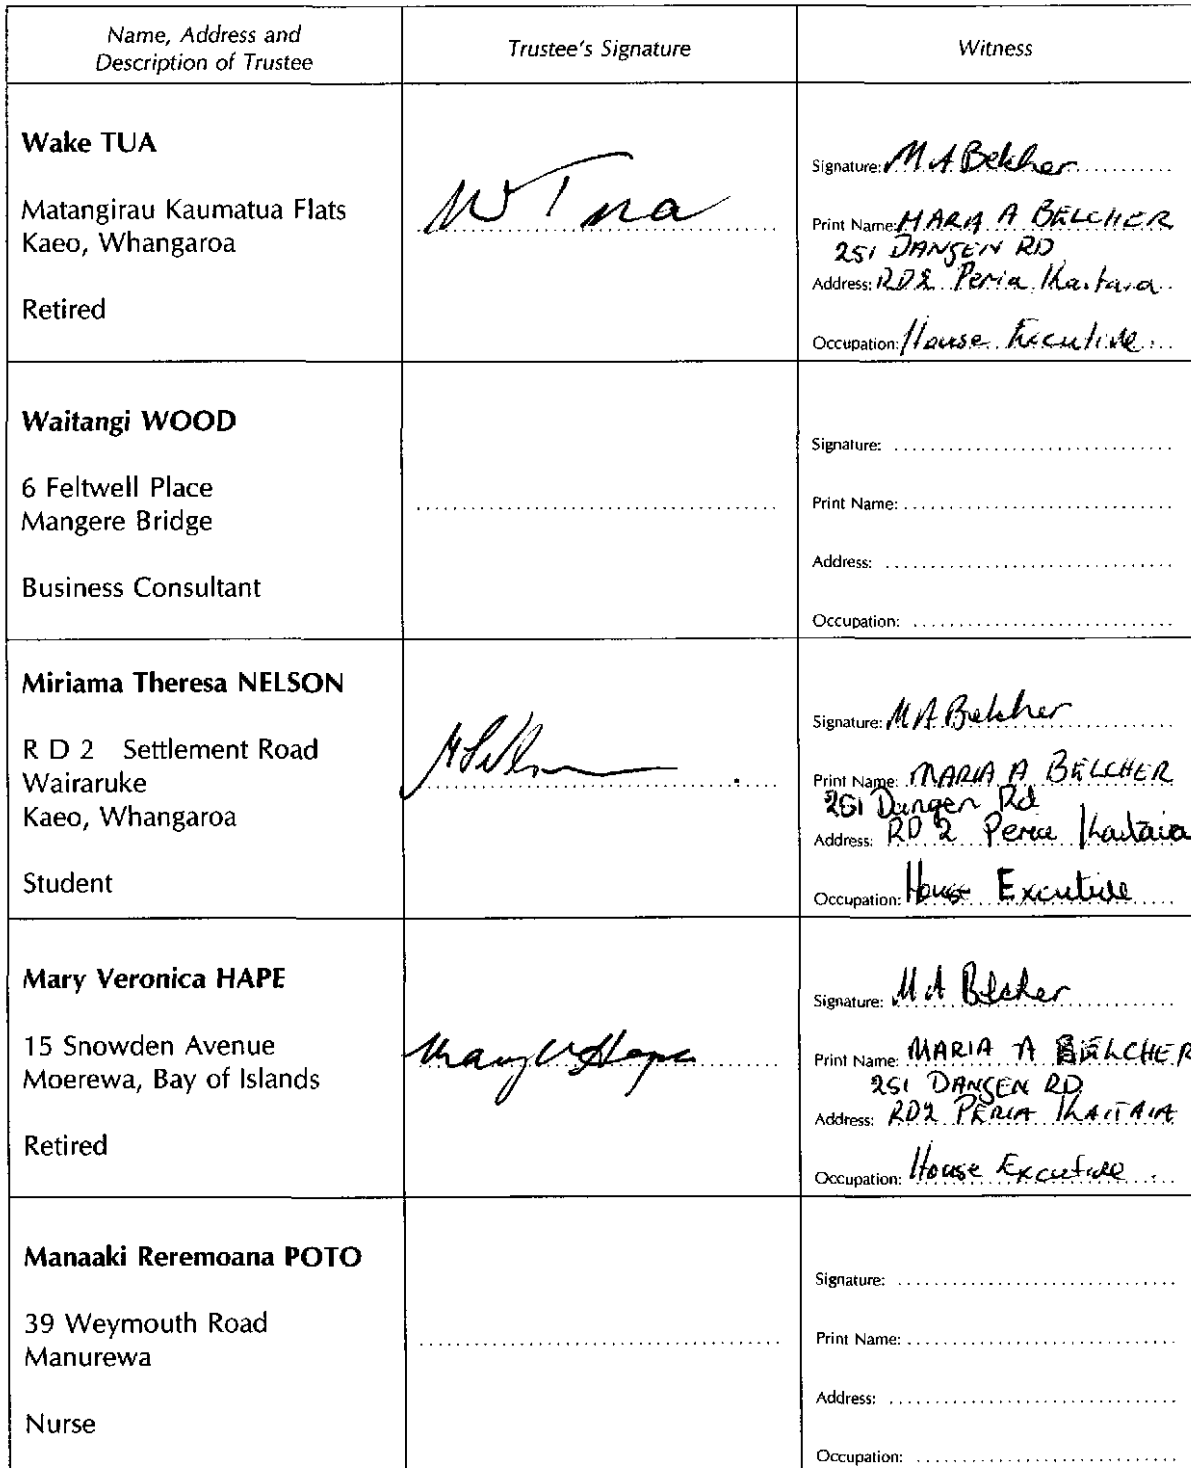 Name, Address and
Description of Trustee
Trustee's Signature
Witness
Wake TUA
Matangirau Kaumatua Flats
Kaeo, Whangaroa
Retired
W Tua
Signature: M A Belcher
Print Name: MARIA A BELCHER
251 DANGEN RD
Address: RD2 Peria Kaitaia
Occupation: House Executive
Waitangi WOOD
6 Feltwell Place
Mangere Bridge
Business Consultant
Signature:
Print Name:
Address:
Occupation:
Miriama Theresa NELSON
R D 2 Settlement Road
Wairaruke
Kaeo, Whangaroa
Student
Signature: M A Belcher
Print Name: MARIA A BELCHER
251 Dangen Rd
Address: RD 2 Peria Kaitaia
Occupation: House Excutive
Mary Veronica HAPE
15 Snowden Avenue
Moerewa, Bay of Islands
Retired
Mary V Hape
Signature: M A Belcher
Print Name: MARIA A BELCHER
251 DANGEN RD
Address: RD2 PERIA KAITAIA
Occupation: House Excutive
Manaaki Reremoana POTO
39 Weymouth Road
Manurewa
Nurse
Signature:
Print Name:
Address:
Occupation: